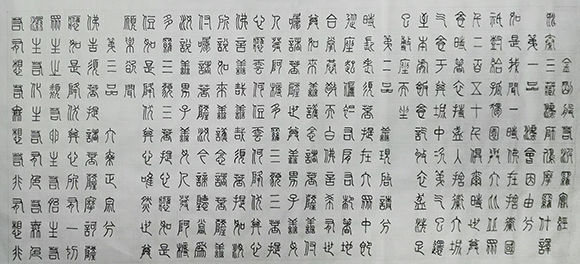 金剛般若波羅蜜經
姚秦三藏法師鳩摩羅什譯
第一品 法會因由分
如是我聞一時佛在舍衛國
祇樹給孤獨園與大比丘眾
千二百五十人俱爾時世尊
食時著衣持缽入舍衛大城
乞食於其城中次第乞已還
至本處飯食訖收衣缽洗足
已敷座而坐
第二品 善現啟請分
時長老須菩提在大眾中即
從座起偏袒右肩右膝著地
合掌恭敬而白佛言希有世
尊如來善護念諸菩薩善付
囑諸菩薩世尊善男子善女
人發阿耨多羅三藐三菩提
心云何應住云何降伏其心
佛言善哉善哉須菩提如汝
所說如來善護念諸菩薩善
付囑諸菩薩汝今諦聽當為
汝說善男子善女人發阿耨
多羅三藐三菩提心應如是
住如是降伏其心唯然世尊
願樂欲聞
第三品 大乘正宗分
佛告須菩提諸菩薩摩訶薩
應如是降伏其心所有一切
眾生之類若卵生若胎生若
濕生若化生若有色若無色
若有想若無想若非有想非